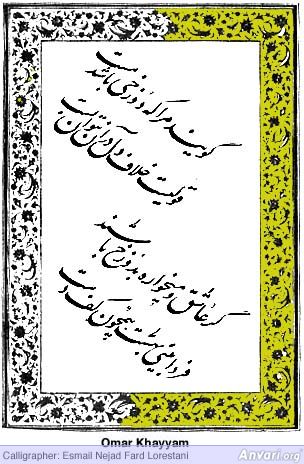 گویند مرا که دوزخی باشد مست
قولیست خلاف دل در آن نتوان بست
گر عاشق و میخواره بدوزخ باشند
فردا بینی بهشت همچون کف دست
Omar Khayyam
Calligrapher: Esmail Nejad Fard Lorestani
Anvari.org